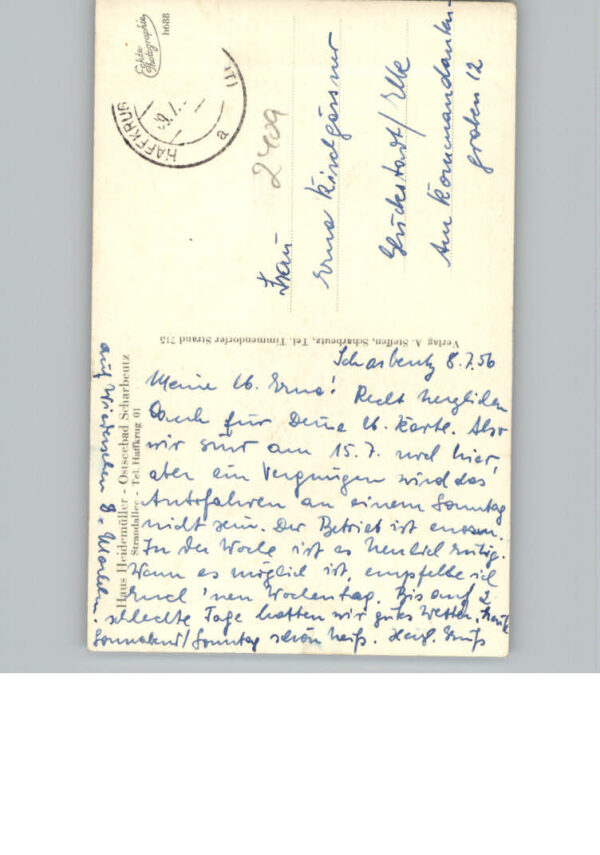 Echte
Photographie
h688
HAFFKRUG
a
2409
Frau
Erna Kirchgässner
Glückstadt/Elbe
Am Kommandanten-
graben 12
Verlag A. Steffen, Scharbeutz, Tel. Timmendorfer Strand 715
Haus Heidemüller - Ostseebad Scharbeutz
Strandallee - Tel. Haffkrug 01
Scharbeutz 8.7.56
Meine lb. Erna! Recht herzlichen
Dank für Deine lb. Karte. Also
wir sind am 15.7. noch hier,
aber ein Vergnügen wird das
Autofahren an einem Sonntag
nicht sein. Der Betrieb ist enorm.
In der Woche ist es ziemlich ruhig.
Wenn es möglich ist, empfehle ich
Euch 'nen Wochentag. Bis auf 2
schlechte Tage hatten wir gutes Wetter.
Sonnabend/Sonntag schön heiß. Herzl. Gruß
auf Wiedersehen